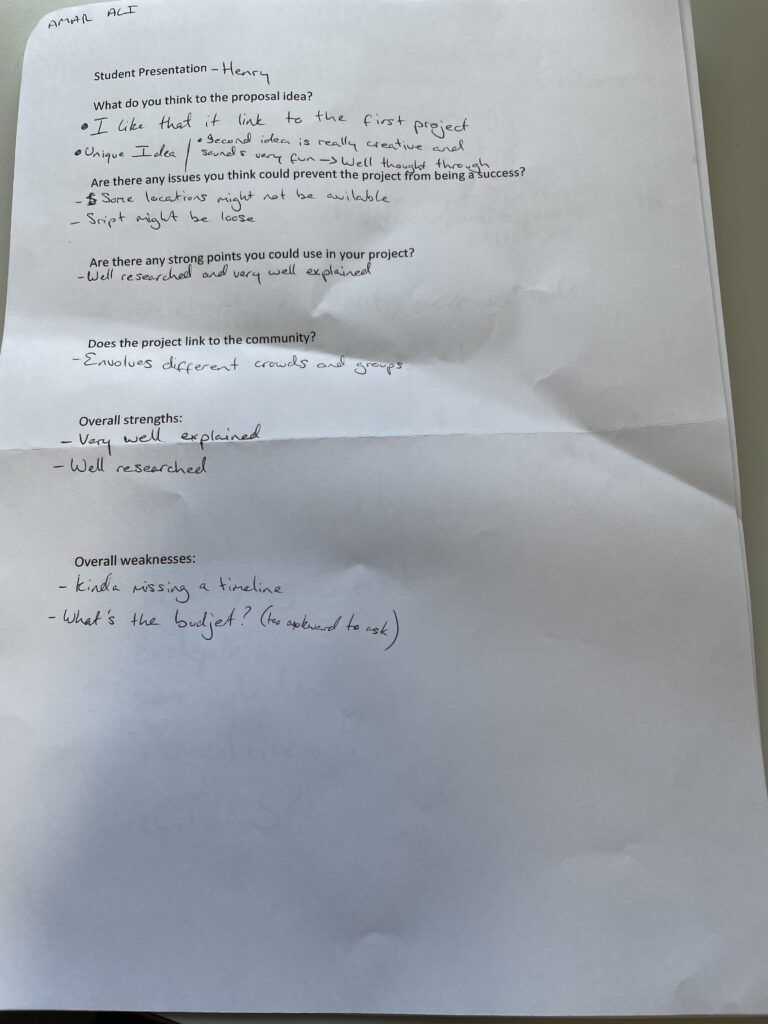 AMAR ALI
Student Presentation - Henry
What do you think to the proposal idea?
• I like that it link to the first project
• Unique Idea / • Second idea is really creative and
sounds very fun → Well thought through
Are there any issues you think could prevent the project from being a success?
- Some locations might not be avilable
- Sript might be loose
Are there any strong points you could use in your project?
- Well researched and very well explained
Does the project link to the community?
- Envolves different crowds and groups.
Overall strengths:
- Very well explained
- Well researched
Overall weaknesses:
- Kinda missing a timeline
- What's the budjet? (too awkward to ask)